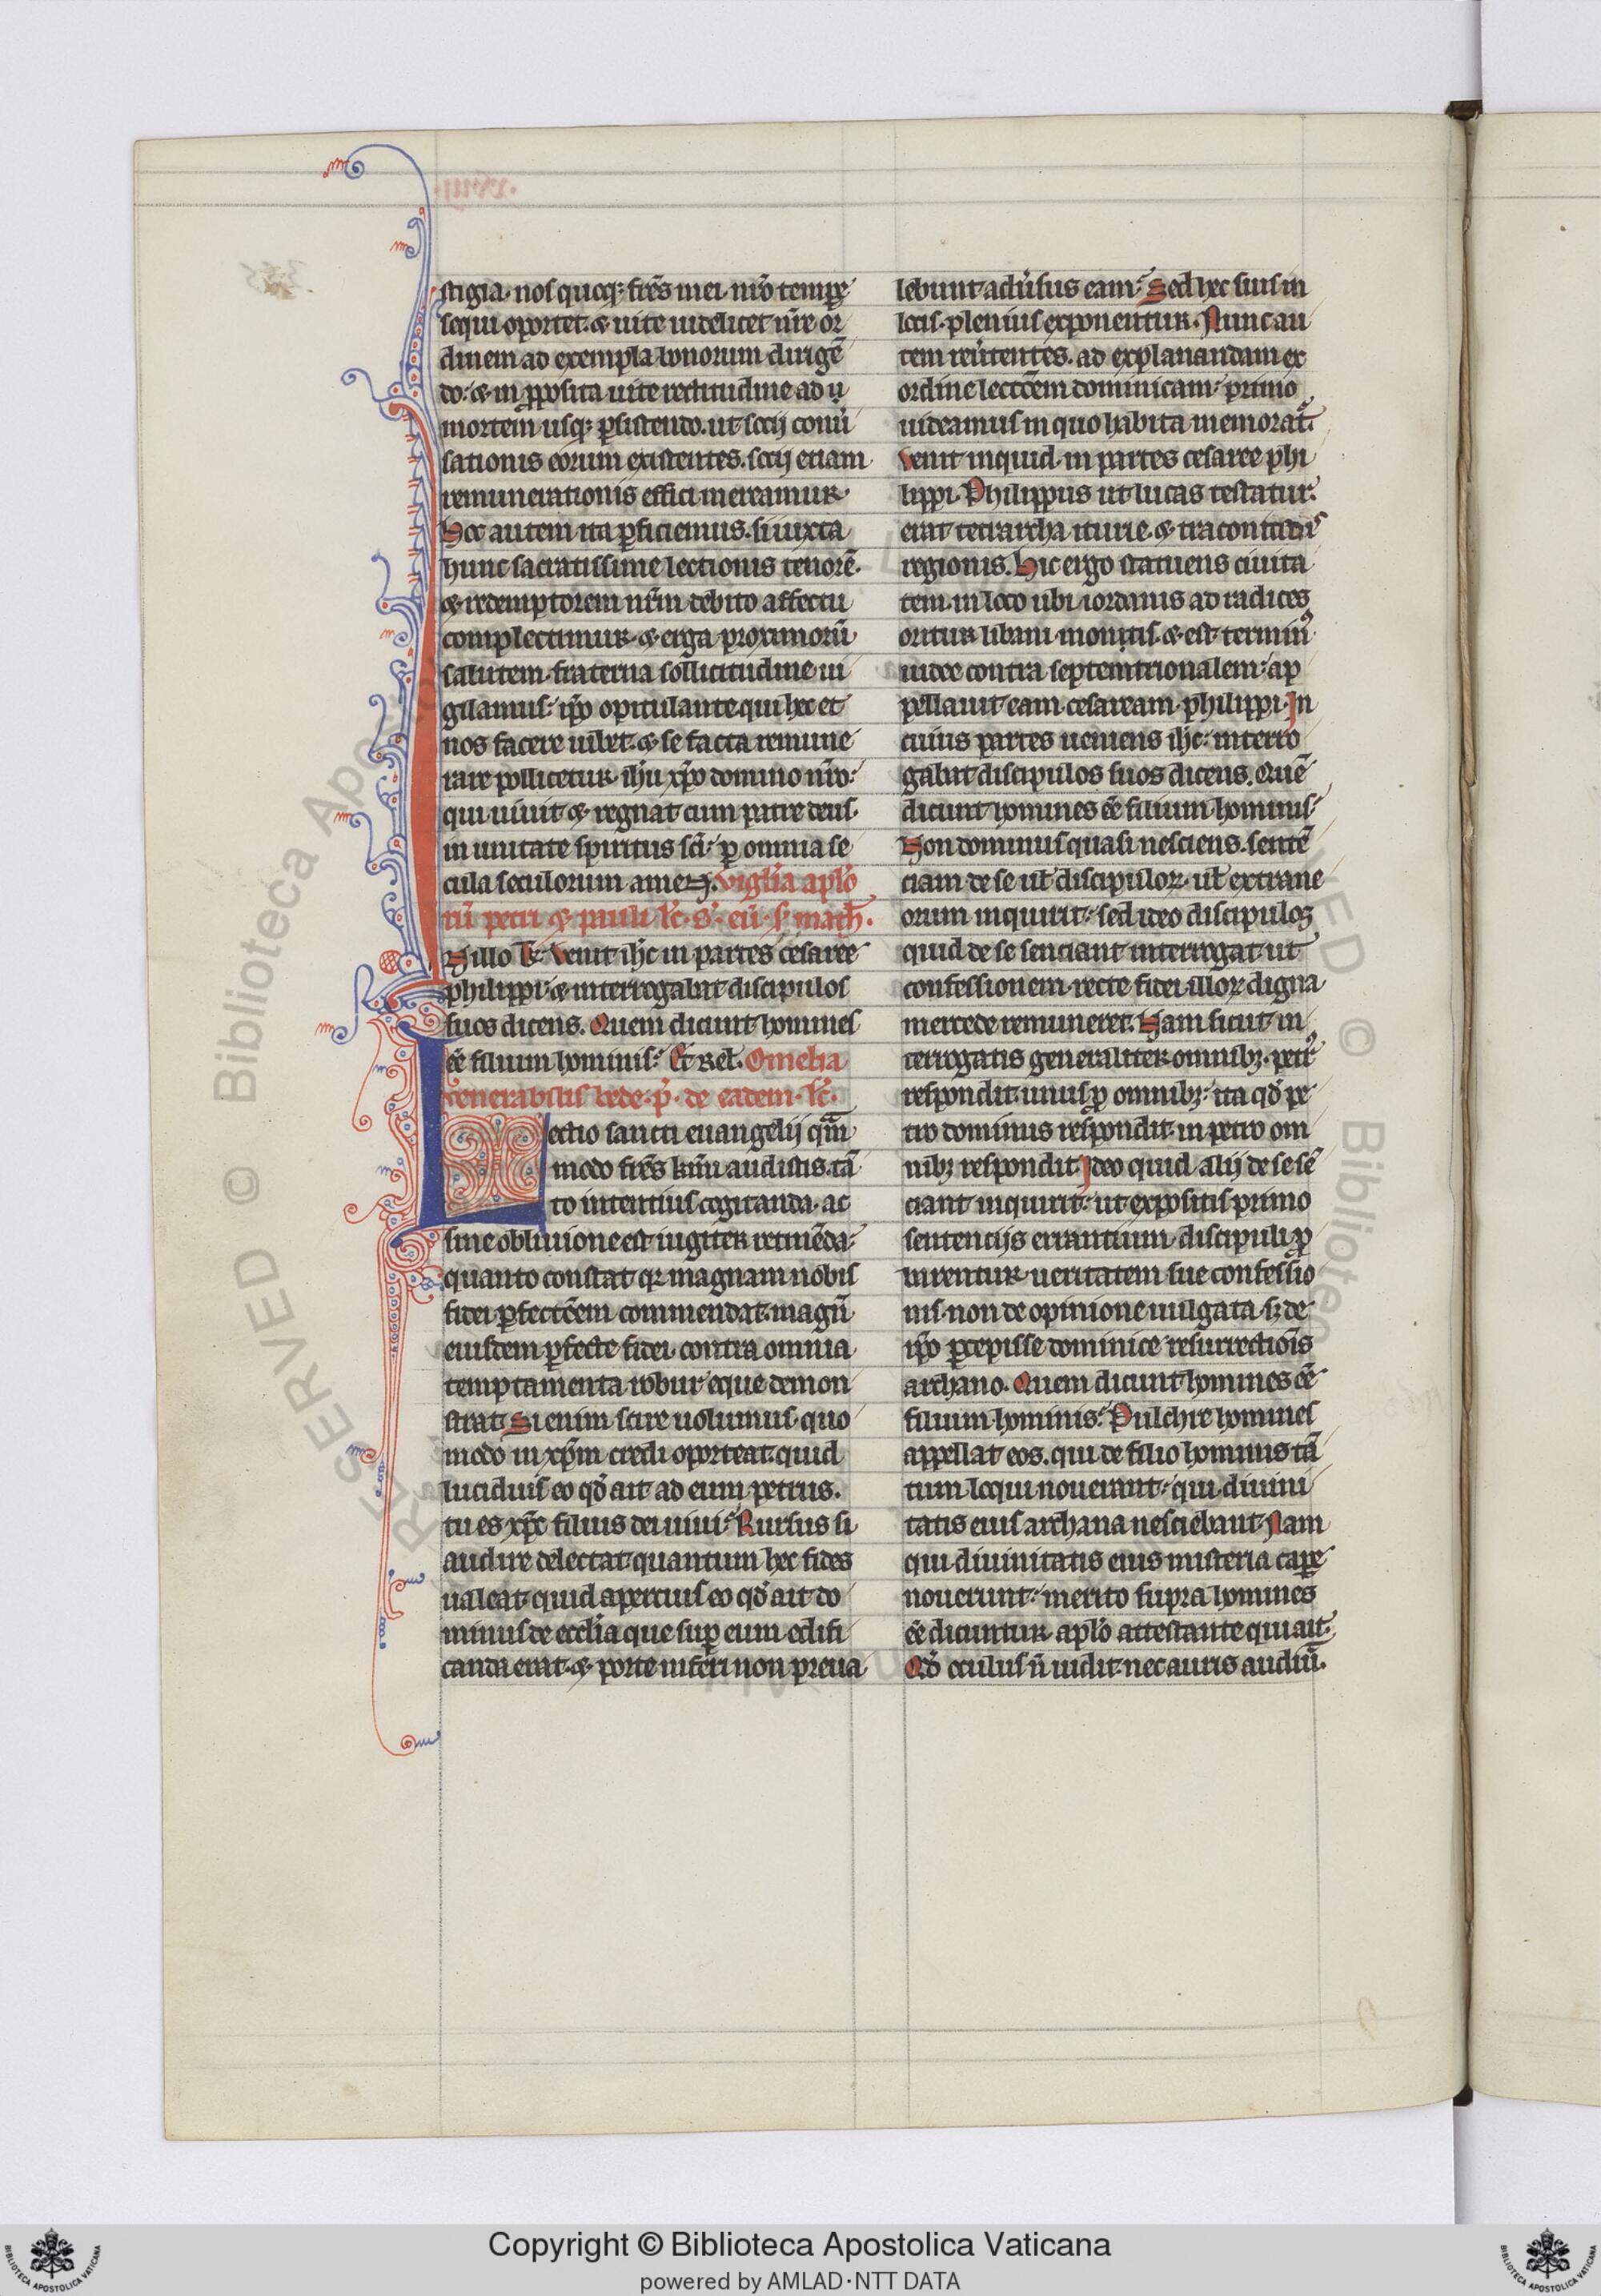 stigia. nos quoq; fr̄es mei. nr̄o tempe̅
sequi oportet. & uite uidelicet nr̄e or
dinem ad exempla bonorum dirigē
do: & in p̱posita uite rectitudine ad u̩
mortem usq; p̱sistendo. ut socij conu̾
sationis eorum existentes. socij etiam
remunerationis effici mereamur.
Hoc autem ita p̱ficiemus. si iuxta
hunc sacratissime lectionis tenorē.
& redemptorem nr̄m debito affectu
complectimur. & erga proximorū
salutem fraterna sollicitudine ui
gilamus: ip̄o opitulante qui hec et
nos facere iubet. & se facta remune
rare pollicetur. ih̄u xp̄o domino nr̄o:
qui uiuit & regnat cum patre deus.
in unitate spiritus sc̄i: p̱ omnia se
cula seculorum amen. vigl̄ia apl̄o
rū petri & pauli lc̄. s. eū. s. math̄.
In illo t̄. Venit ih̄c in partes cesaree
philippi. & interrogabat discipulos
suos dicens. Quem dicunt homines
eē filium hominis: Et rel̄. Omelia
venerabilis bede. p̄. de eadem. lc̄.
Lectio sancti euangelij qm̄
modo fr̄es km̄i audistis. tā
to intentius cogitanda. ac
sine obliuione est iugiter retinēda:
quanto constat qr magnam nobis
fidei p̱fectōem commendat. magnū
eiusdem p̱fecte fidei. contra omnia
temptamenta robur eque demon
strat. Si enim scire uolumus. quo
modo in xp̄m credi oporteat. quid
lucidius eo qd̄ ait ad eum petrus.
tu es xp̄c filius dei uiui: Rursus si
audire delectat quantum hec fides
ualeat. quid apertius eo qd̄ ait do
minus de eccl̄ia que sup̱ eum edifi
canda erat. & porte inferi non preua
lebunt adu̾sus eam: Sed hec suis in
locis. plenius exponentur. Nunc au
tem reu̾tentes. ad explanandam ex
ordine lectōem dominicam: primo
uideamus in quo habita memorat̄.
Venit inquid. in partes cesaree phi
lippi. Philippus ut lucas testatur:
erat tetrarcha iturie. & traconitidis
regionis. Hic ergo statuens ciuita
tem. in loco ubi iordanis ad radices
oritur libani montis. & est terminꝰ
iudee contra septemtrionalem: ap
pellauit eam cesaream philippi. In
cuius partes ueniens ih̄c: interro
gabat discipulos suos dicens. Quē
dicunt homines eē filium hominis:
Non dominus quasi nesciens. sentē
ciam de se ul̄ discipuloꝝ. ul̄ extrane
orum inquirit: sed ideo discipulos
quid de se senciant interrogat. ut
confessionem recte fidei illoꝝ digna
mercede remuneret. Nam sicut in
terrogatis generaliter omnibꝫ. petrꝰ
respondit. unus p̱ omnibꝫ: ita qd̄ pe
tro dominus respondit. in petro om
nibꝫ respondit. Ideo quid alij de se sē
ciant inquirit: ut expositis primo
sentencijs errantium. discipuli p̱
barentur ueritatem sue confessio
nis. non de opinione uulgata. sꝫ de
ip̄o p̱cepisse dominice resurrectiōis
archano. Quem dicunt homines eē
filium hominis: Pulchre homines
appellat eos. qui de filio hominis tā
tum loqui nouerant: qui diuini
tatis eius archana nesciebant. Nam
qui diuinitatis eius misteria cape̅
nouerunt: merito supra homines
eē dicuntur. apl̄o attestante qui ait.
Qd̄ oculus n̄ uidit. nec auris audiū.
Copyright © Biblioteca Apostolica Vaticana
powered by AMLAD·NTT DATA